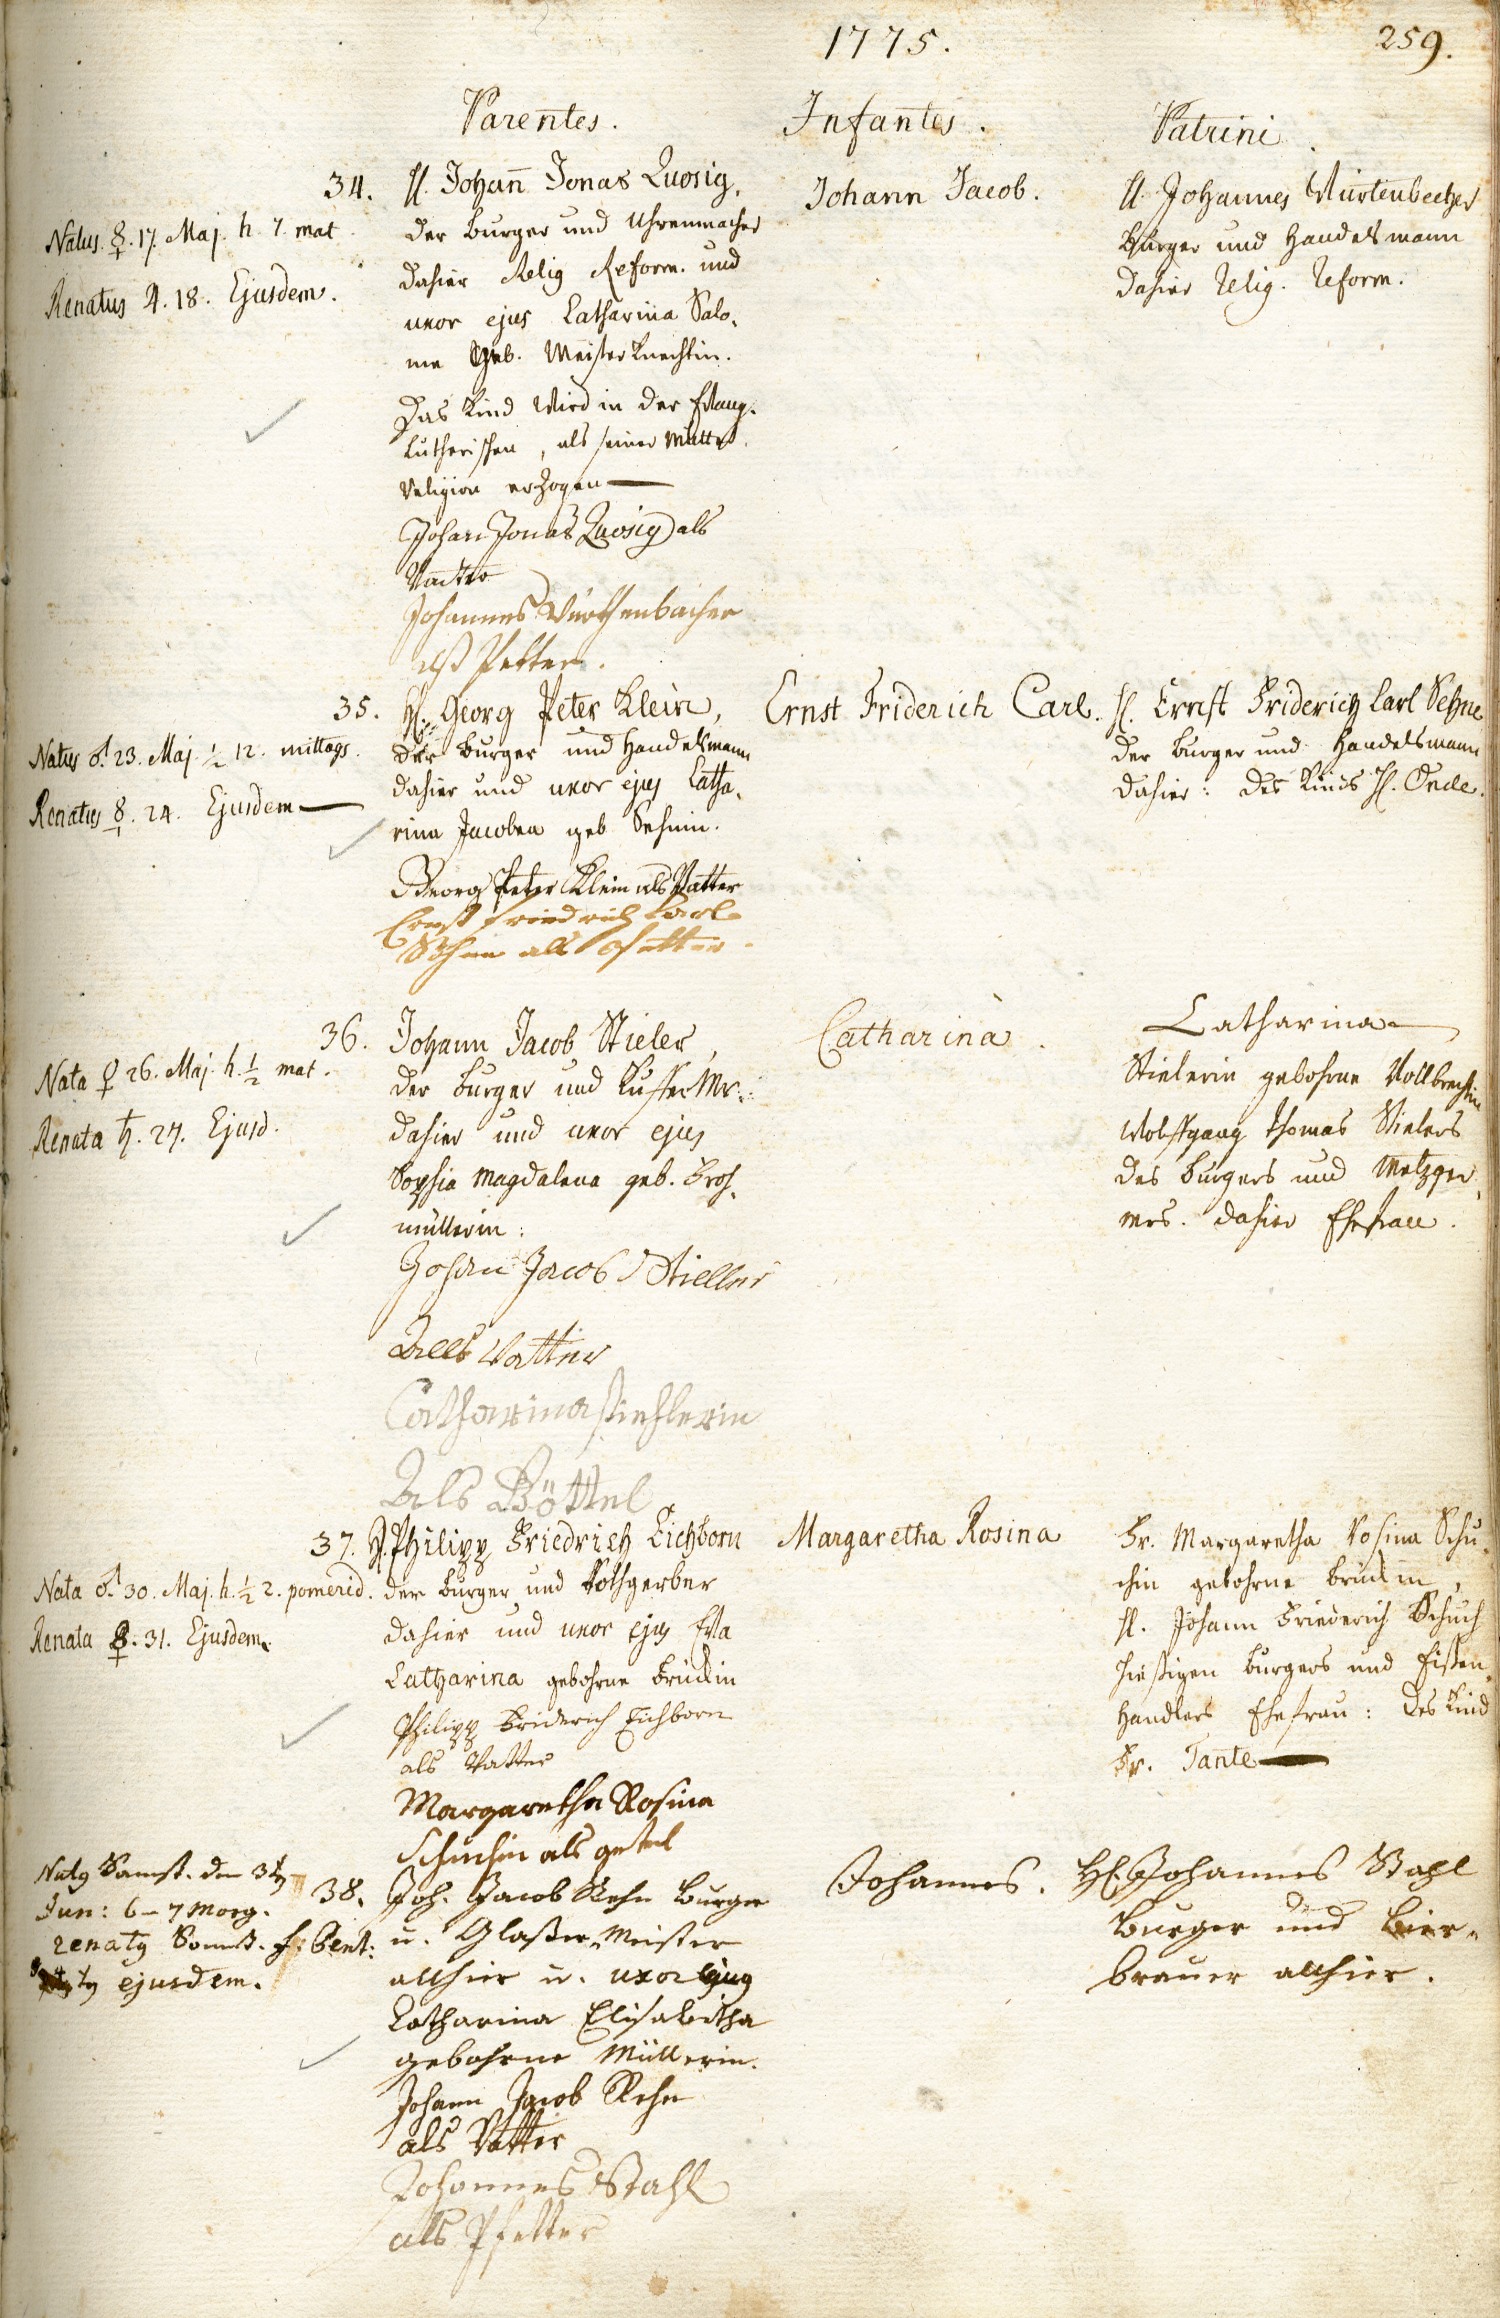 1775.
259.
Parentes.
Infantes.
Patrini
34.
H. Johann Jonas Quosig,
der Burger und Uhrenmacher
dahier Relig Reform. und
uxor ejus Catharina Salo-
me geb. Meisterknechtin.
Das Kind wird in der Evang.
Lutherischen, als seiner Mutter
Religion erzogen
Johan Jonas Quosig als
Vatter
Johannes Würthenbächer
als Petter.
Natus ☿. 17. Maj. h. 7. mat.
Renatus ♃. 18. Ejusdem.
Johann Jacob.
H. Johannes Würtenbecher
Burger und Handelsmann
dahier Relig. Reform.
35.
H. Georg Peter Klein,
der Burger und Handelsmann
dahier und uxor ejus Catha-
rina Jacobea geb. Sehnin.
Georg Peter Klein als Vatter
Ernst Friedrich Carl
Söhne als Pfetter.
Natus ♂. 23. Maj. ½ 12. mittags.
Renatus ☿. 24. Ejusdem
Ernst Friderich Carl.
H. Ernst Friderich Carl Sehne
der Burger und Handelsmann
dahier: des Kinds H. Oncle.
36.
Johann Jacob Stieler,
der Burger und Kuffer Mr.
dahier und uxor ejus
Sophia Magdalena geb. Froh-
müllerin:
Johan Jacob Stieller
Alls Vatter
Catharina stiehlerin
Als Göttel
Nata ♀ 26. Maj. h. ½ mat.
Renata ♄. 27. Ejusd.
Catharina.
Catharina
Stielerin gebohrne Vollbrechtin
Wolfgang Thomas Stielers
des Burgers und Metzger-
mrs. dahier Ehefrau.
37.
H. Philipp Friedrich Eichborn
der Burger und Rothgerber
dahier und uxor ejus Eva
Catharina gebohrne Brückin
Philipp Friderich Eichborn
als Vatter
Margaretha Rosina
Schuchin als getel
Nata ♂. 30. Maj. h. ½ 2. pomerid.
Renata ☿. 31. Ejusdem.
Margaretha Rosina
Fr. Margaretha Rosina Schu-
chin gebohrne Brückin,
H. Johann Friederich Schuch
hiesigen Burgers und Eissen-
Handlers Ehefrau: des Kind
Fr. Tante
38.
Joh. Jacob Rehn Burger
u. Glasser-Meister
allhier u. uxor ejus
Catharina Elisabetha
gebohrne Müllerin.
Johann Jacob Rehn
als Vatter
Johannes Stahl
als Pfetter
Natus Samst. den 3ten
Jun: 6–7 Morg.
renatus Sonnt. f. Pent:
ejusdem.
Johannes.
H. Johannes Stahl
Burger und Bier-
brauer allhier.